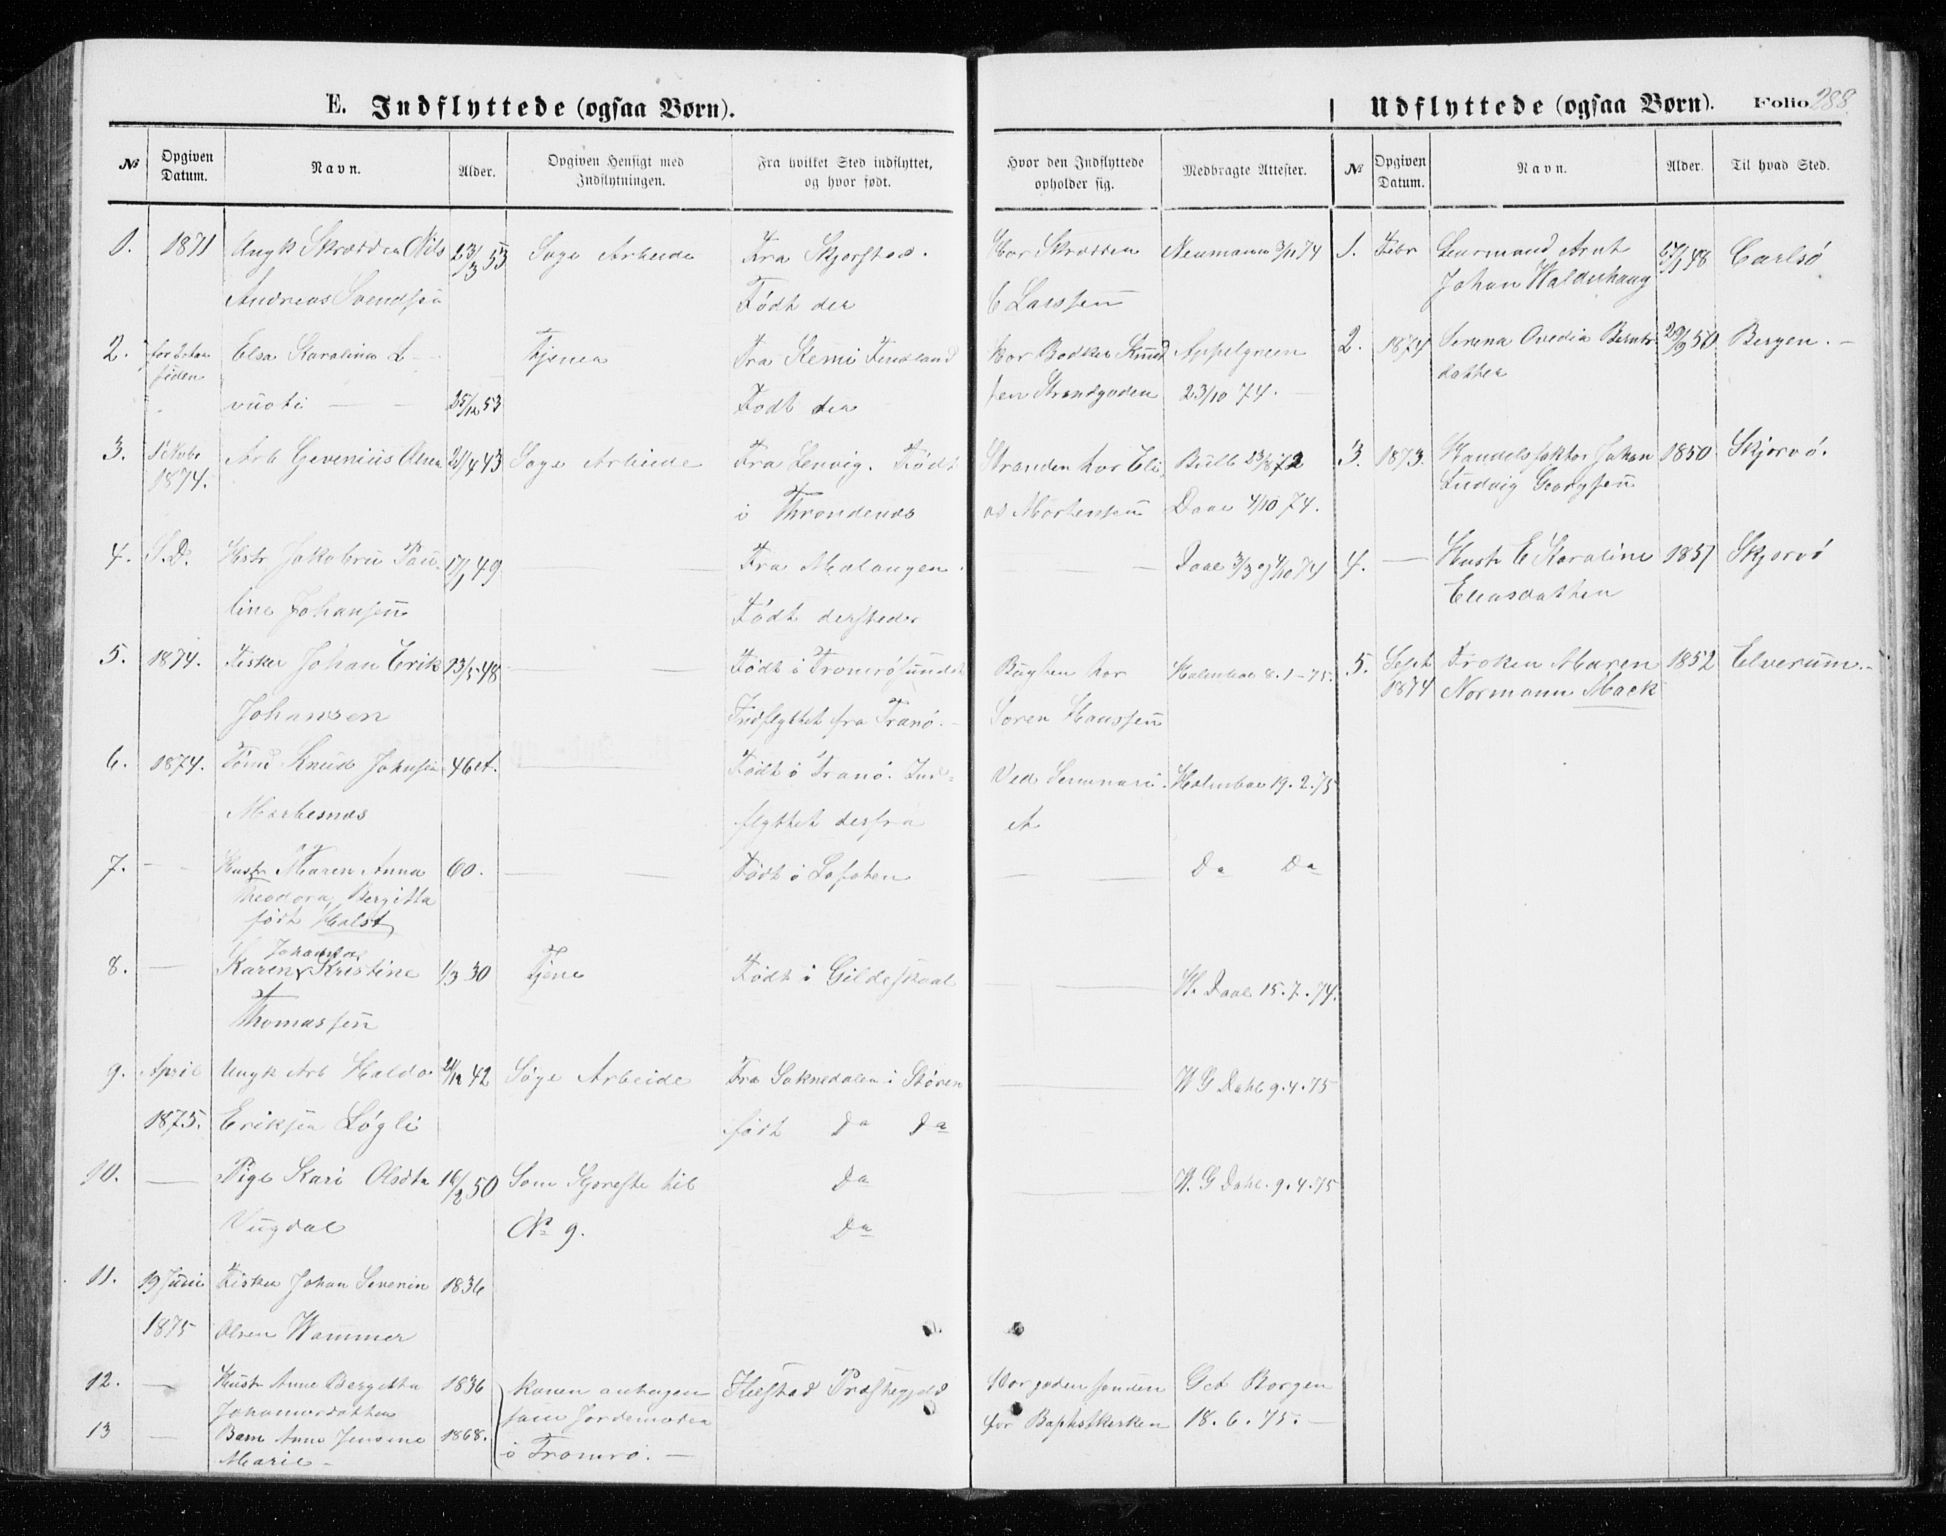 E. Indflyttede (ogsaa Børn).
Udflyttede (ogsaa Børn). Folio 288
№ Opgiven Datum. Navn. Alder. Opgiven Hensigt med Indflytningen. Fra hvilket Sted indflyttet, og hvor født. Hvor den Indflyttede opholder sig. Medbragte Attester. № Opgiven Datum. Navn. Alder. Til hvad Sted.
1. 1871 Ungk Skrædder Nils 23/3 53 Søge Arbeide Fra Skjerstad. Hos Skrædder Neumann 3/11 74
Andreas Svendsen Født der C Larssen
2. Elsa Karolina L- Tjene Fra Kemi Findland Hos Bødker Knud Appelgreen
siden vuoti 25/12 53 Født der sen Strandgaden 23/10 74.
3. Oktobr Arb Gevenius Olsen 21/4 43 Søge Arbeide Fra Lenvig. Født Stranden hos Eli Bull 23/8 72
1874. i Throndenæs as Mortensen Daae 4/10 74.
4. S.D. Hstr Jakobine Pau 17/1 49 Fra Malangen. Daae 3/3 og 4/10 74
line Johansen Født dersteds
5. 1874. Fisker Johan Erik 23/5 48 Født i Tromsøsundet Bugten hos Holmboe 8-1-75.
Johansen Indflyttet fra Tranø. Søren Hanssen
6. 1874. Knud Johnsen 46 et. Født i Tranø. Ind- Ved Seminari Holmboe 19.2.75
Markenæs flyttet derfra et
7. Hustr Maren Anna 60. Født i Lofoten Do Do
Theodora Bergitta
født Holst
8. Johanna
Karen Kristine 1/3 30 Tjene Født i Gildeskaal H. Daae 15.7.74.
Thomassen
9. April Ungk Arb Haldo /12 42 Søge Arbeide Fra Soknedalen i Støren W G Dahl 9.4.75
1875. Eriksen Løgli født Do Do
10. Pige Kari Olsdtr 16/2 50 Som Kjæreste til Do W. G Dahl. 9.4.75
Vugdal № 9. Do
11. 19 Juni Fisker Johan Severin 1836
1875 Olsen Hammer
12. Hustr Anne Bergitta 1836 Konen antagen Præstegjeld Hos Get Borgen
Johannesdatter som Jordemoder for Baptistkirken 18.6.75.
13 Barn Anne Jensine 1868. i Tromsø.
Marie
1. Febr Arnt /1 48 Carlsø
Johan Walderhaug
2. 1874 Serena Ovedia Bernts 29/9 50 Bergen.
datter
3. 1873. Handelsfaktor Johan 1850 Skjervø.
Ludvig Georgsen
4. Hustr E Karoline 1851 Skjervø
Eliasdatter
5. Sept Frøken Maren 1852 Elverum.
1874 Normann Mack